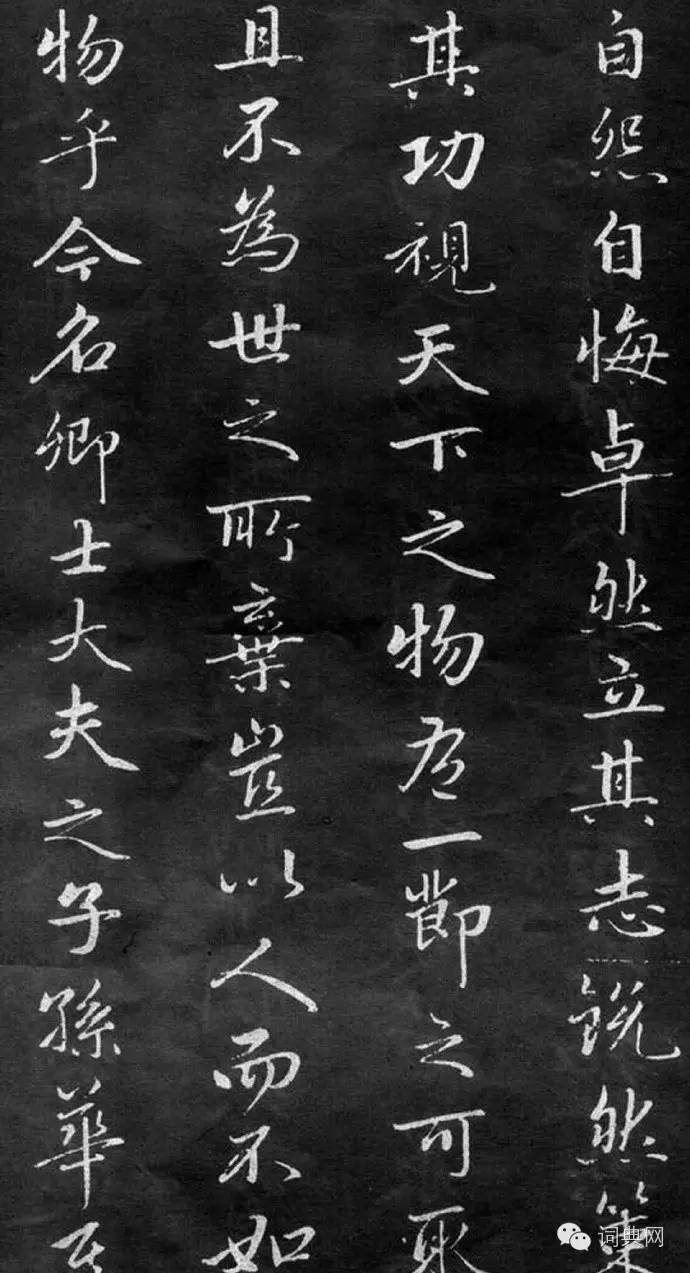 自然自悔卓然立其志銳然策
其功視天下之物有一節之可取
且不為世之所棄豈以人而不如
物乎今名卿士大夫之子孫華其
词典网